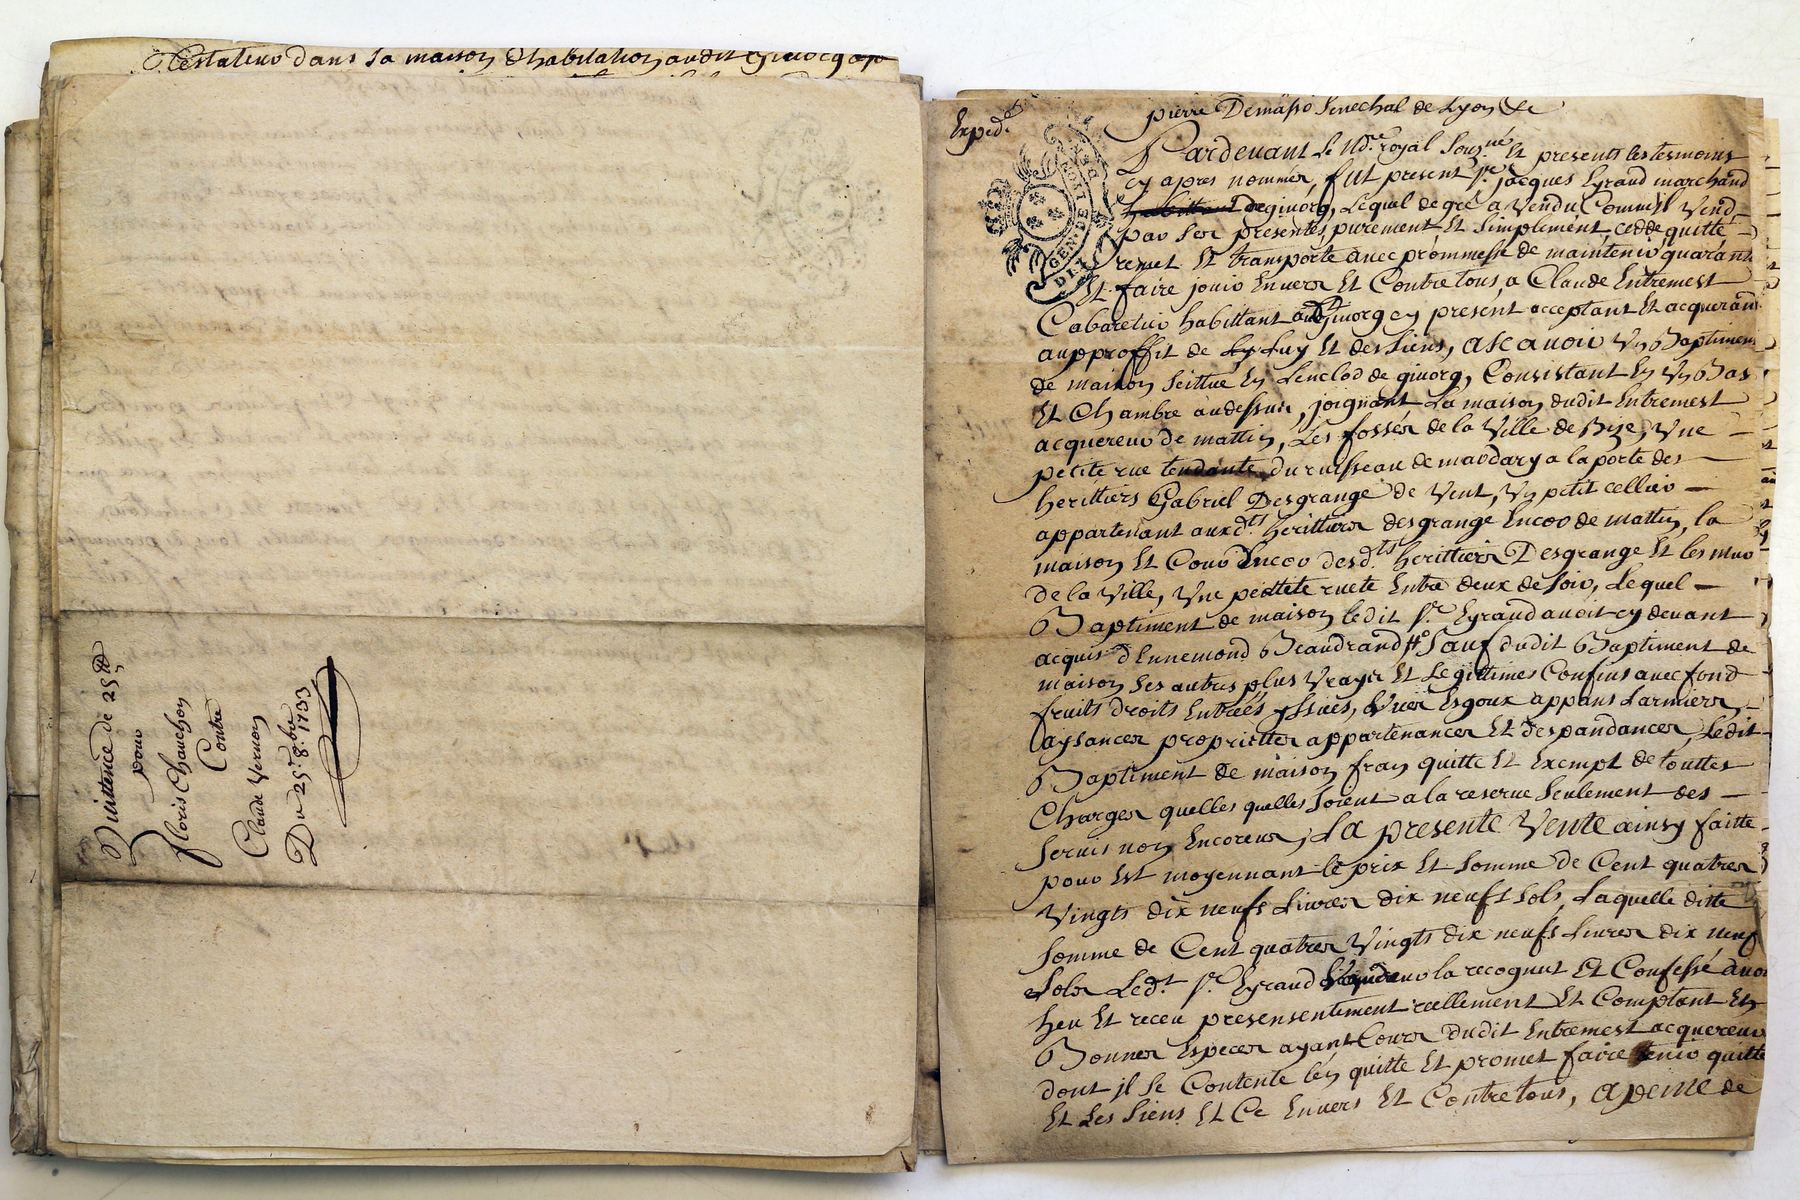 testateur dans sa maison d'habitation audit givorg
Quittence de 25ᵗᵗ
pour
Floris Chauchon
Contre
Claude Vernon
Du 25ᵉ 8.bre 1733
Expedᵉ
pierre Demasso Senechal de Lyon &c
GEN. DE LION
Pardevant Le Nore royal Sousne Et presents les tesmoins
cy apres nommer, fut present Sr. jacques Eyraud marchand
habittant de givorg, Lequel de gré a Vendu Comme il Vend
par Ses presentes, purement Et Simplement, cedde quitte
remet Et transporte avec prommesse de maintenir quarantir
Et faire jouir Envers Et Contre tous, a Claude Entremest
Cabaretier habittant audt givorg cy present acceptant Et acquerant
aupproffit de Luy Et des Siens, ascavoir Un Baptiment
de maison Scittué En Lenclos de givorg, Consistant En Un Bas
Et Chambre audessus, joignant La maison dudit Entremest
acquereur de mattin, Les fossés de la Ville de Bize, Une
petite rue tendante du ruisseau de mardary a la porte des
herittiers Gabriel Desgrange de Vent, Un petit cellier
appartenant auxdts. herittiers desgrange Encor de mattin, la
maison Et Cour Encor desdts. herittiers Desgrange Et les mur
de la Ville, Une petitte ruete Entre deux de Soir, Lequel
Baptiment de maison ledit Sr. Eyraud avoit cy devant
acquis d'Ennemond Beaudrand Sauf dudit Baptiment de
maison Ses autres plus Vrayes Et Legittimes Confins avec fond
fruits droits Entreés yssües, Vües Esgoux appans Larmiers,
aysances proprietter appartenances Et despandances, Ledit
Baptiment de maison fran quitte Et Exempt de touttes
Charges quelles quelles Soient a la reserve Seulement des
Servis non Encoreus, La presente Vente ainsy faitte
pour Est moyennant le prix Et Somme de Cent quatres
Vingts dix neufs Livres dix neufs Sols, Laquelle ditte
Somme de Cent quatres Vingts dix neufs Livres dix neuf
Sols Ledt. Sr. Eyraud Vendeur la recognut Et Confessé avoir
heu Et receu presensentement reellement Et Comptant En
Bonnes Especes ayant Cours dudit Entremest acquereur
dont jl Se Contente len quitte Et promet faire tenir quitte
Et Les Siens Et Ce Envers Et Contre tous, a peine de